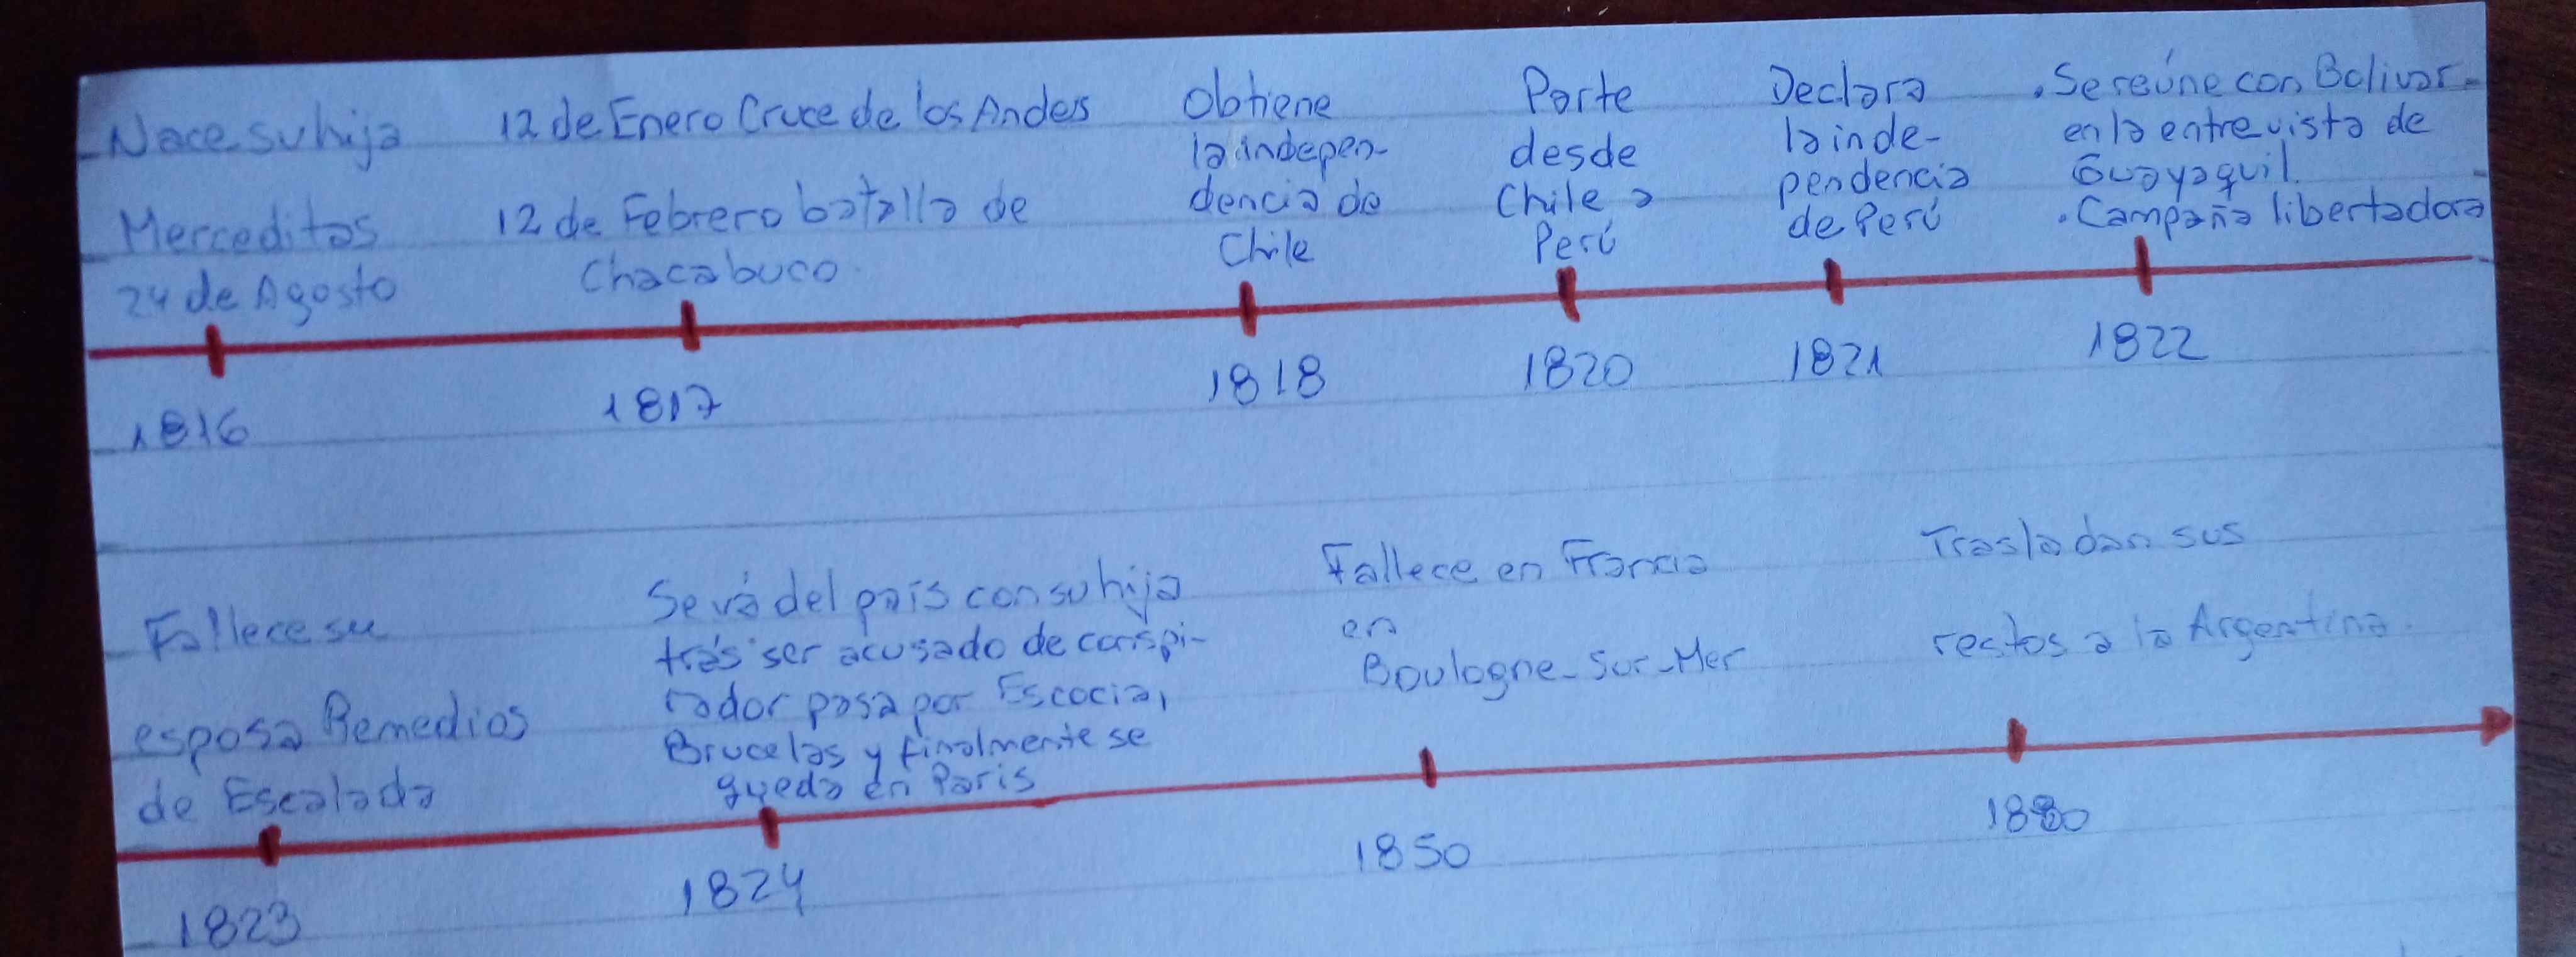 Nace su hija
Merceditas
24 de Agosto
1816
12 de Enero Cruce de los Andes
12 de Febrero batalla de
Chacabuco.
1817
Obtiene
la indepen-
dencia de
Chile
1818
Parte
desde
Chile a
Perú
1820
Declara
la inde-
pendencia
de Perú
1821
. Se reúne con Bolivar
en la entrevista de
Guayaquil.
. Campaña libertadora
1822
Fallece su
esposa Remedios
de Escalada
1823
Se vá del país con su hija
trás ser acusado de conspi-
rador pasa por Escocia,
Brucelas y finalmente se
queda en Paris
1824
Fallece en Francia
en
Boulogne-Sur-Mer
1850
Trasladan sus
restos a la Argentina.
1880